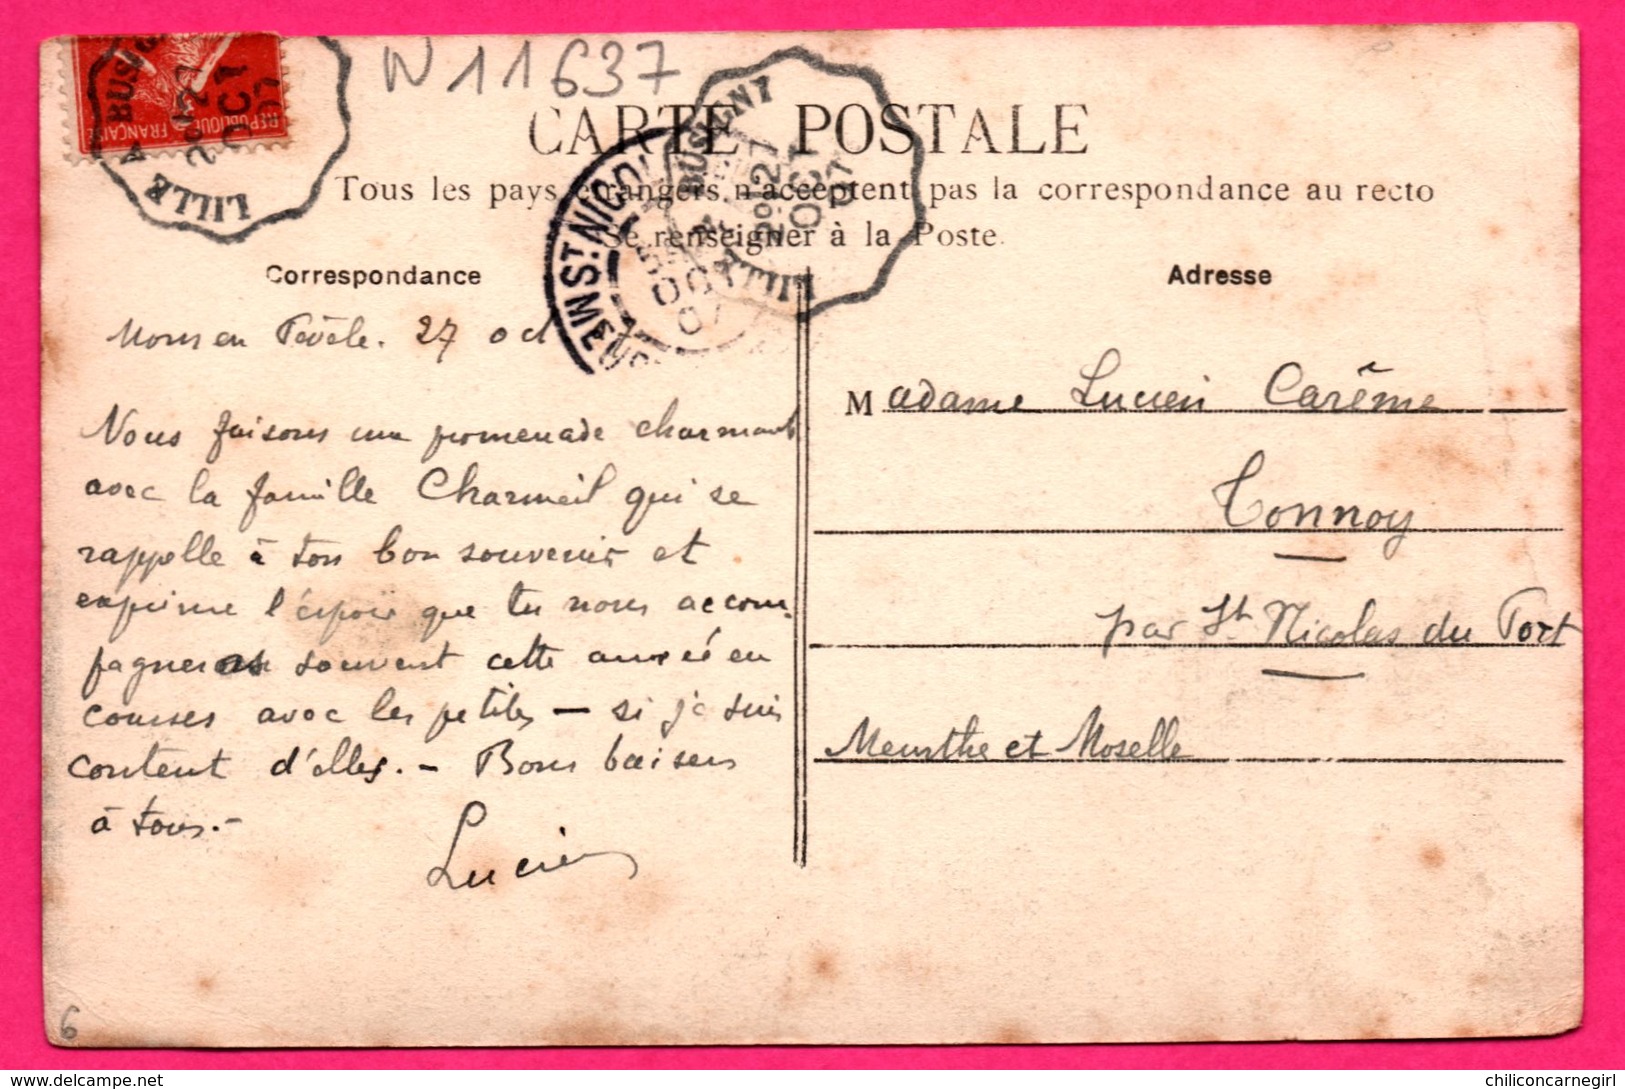 N 11637
CARTE POSTALE
Tous les pays étrangers n'acceptent pas la correspondance au recto
Se renseigner à la Poste.
Correspondance
Adresse
REPUBLIQUE FRANÇAISE
LILLE A BUSIGNY
27 OCT 07
LILLE BUSIGNY
27 OCT 07
ST NICOL
Mons en Pévèle. 27 oct
Nous faisons une promenade charmante
avec la famille Charmeil qui se
rappelle à ton bon souvenir et
exprime l'espoir que tu nous accom-
pagneras souvent cette année en
courses avec les petites — si je suis
content d'elles. — Bons baisers
à tous. —
Lucien
Madame Lucien Carême
Tonnoy
par St Nicolas du Port
Meurthe et Moselle
6
chiliconcarnegirl